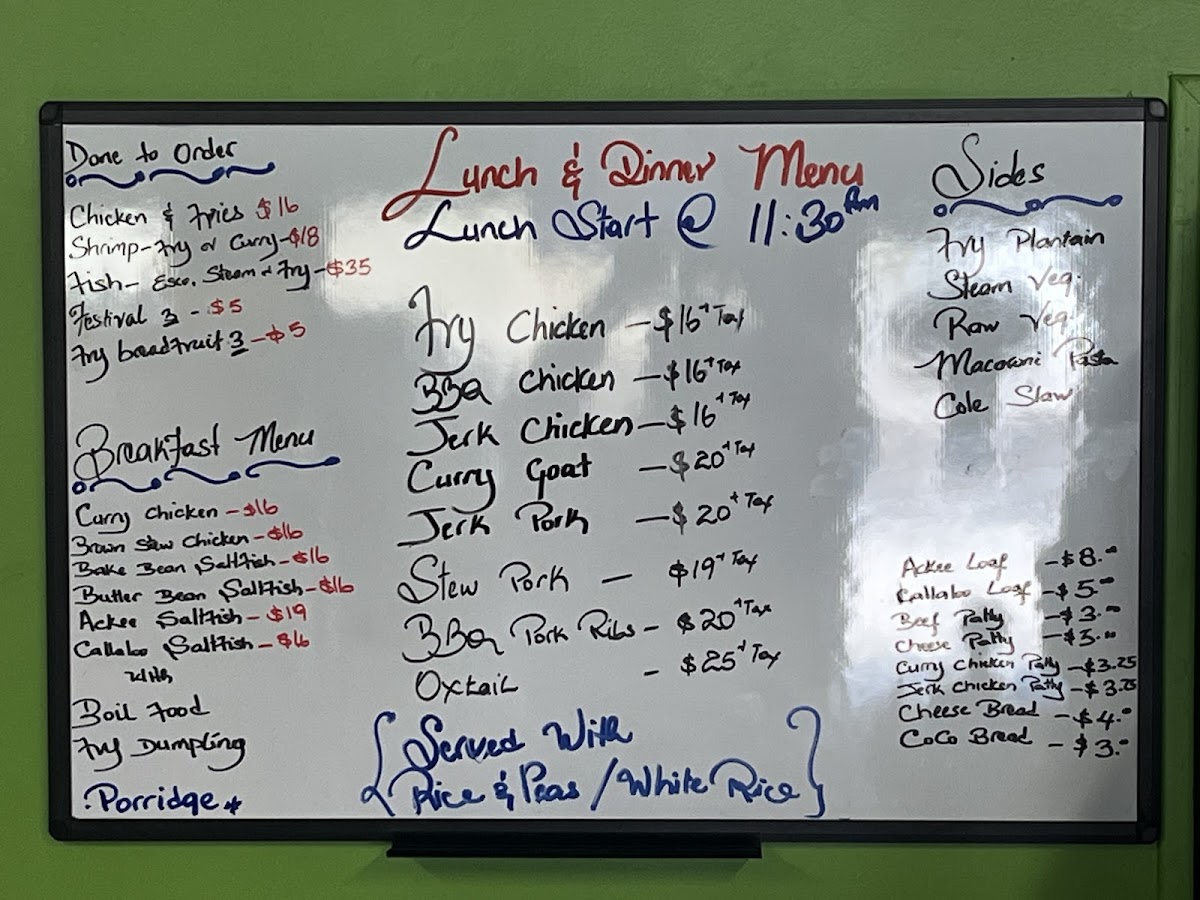 Done to Order
Chicken & Fries $16
Shrimp-Fry or Curry-$18
Fish- Esco, Steam & Fry-$35
Festival 3 - $5
Fry breadfruit 3 -$5
Breakfast Menu
Curry Chicken - $16
Brown Stew Chicken-$16
Bake Bean Saltfish-$16
Butter Bean Saltfish-$16
Ackee Saltfish - $19
Callaloo Saltfish - $16
With
Boil Food
Fry Dumpling
.Porridge*
Lunch & Dinner Menu
Lunch Start @ 11:30 Am
Fry Chicken - $16 + Tax
BBQ Chicken - $16 + Tax
Jerk Chicken - $16 + Tax
Curry Goat - $20 + Tax
Jerk Pork - $20 + Tax
Stew Pork - $19 + Tax
BBQ Pork Ribs - $20 + Tax
Oxtail - $25 + Tax
{Served With
Rice & Peas / White Rice}
Sides
Fry Plantain
Steam Veg.
Raw Veg.
Macaroni Pasta
Cole Slaw
Ackee Loaf - $8.00
Callaloo Loaf - $5.00
Beef Patty - $3.00
Cheese Patty - $3.00
Curry Chicken Patty - $3.25
Jerk Chicken Patty - $3.25
Cheese Bread - $4.00
CoCo Bread - $3.00